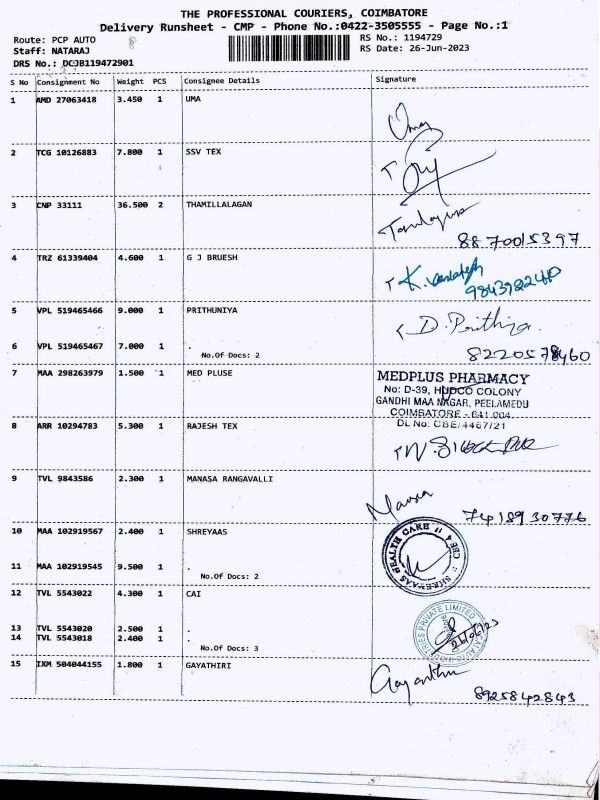 THE PROFESSIONAL COURIERS, COIMBATORE
Delivery Runsheet - CMP - Phone No.:0422-3505555 - Page No.:1
Route: PCP AUTO
RS No.: 1194729
Staff: NATARAJ
RS Date: 26-Jun-2023
DRS No.: DCJB119472901
S No Consignment No Weight PCS Consignee Details Signature
1 AMD 27063418 3.450 1 UMA
Uma
2 TCG 10126883 7.800 1 SSV TEX
3 CNP 33111 36.500 2 THAMILLALAGAN
8870015397
4 TRZ 61339404 4.600 1 G J BRUESH
K. Venkatesh
5 VPL 519465466 9.000 1 PRITHUNIYA
D. Prithiya.
6 VPL 519465467 7.000 1 .
No.Of Docs: 2
8220578460
7 MAA 298263979 1.500 1 MED PLUSE
MEDPLUS PHARMACY
No: D-39, HUDCO COLONY
GANDHI MAA NAGAR, PEELAMEDU
COIMBATORE - 641 004.
DL No: CBE/4467/21
8 ARR 10294783 5.300 1 RAJESH TEX
9 TVL 9843586 2.300 1 MANASA RANGAVALLI
Manasa
7418930776
10 MAA 102919567 2.400 1 SHREYAAS
11 MAA 102919545 9.500 1 .
No.Of Docs: 2
HEALTH CARE
12 TVL 5543022 4.300 1 CAI
13 TVL 5543020 2.500 1 .
14 TVL 5543018 2.400 1 .
No.Of Docs: 3
PRIVATE LIMITED
26/06/23
15 IXM 504044155 1.800 1 GAYATHIRI
Gayathri
8925842843